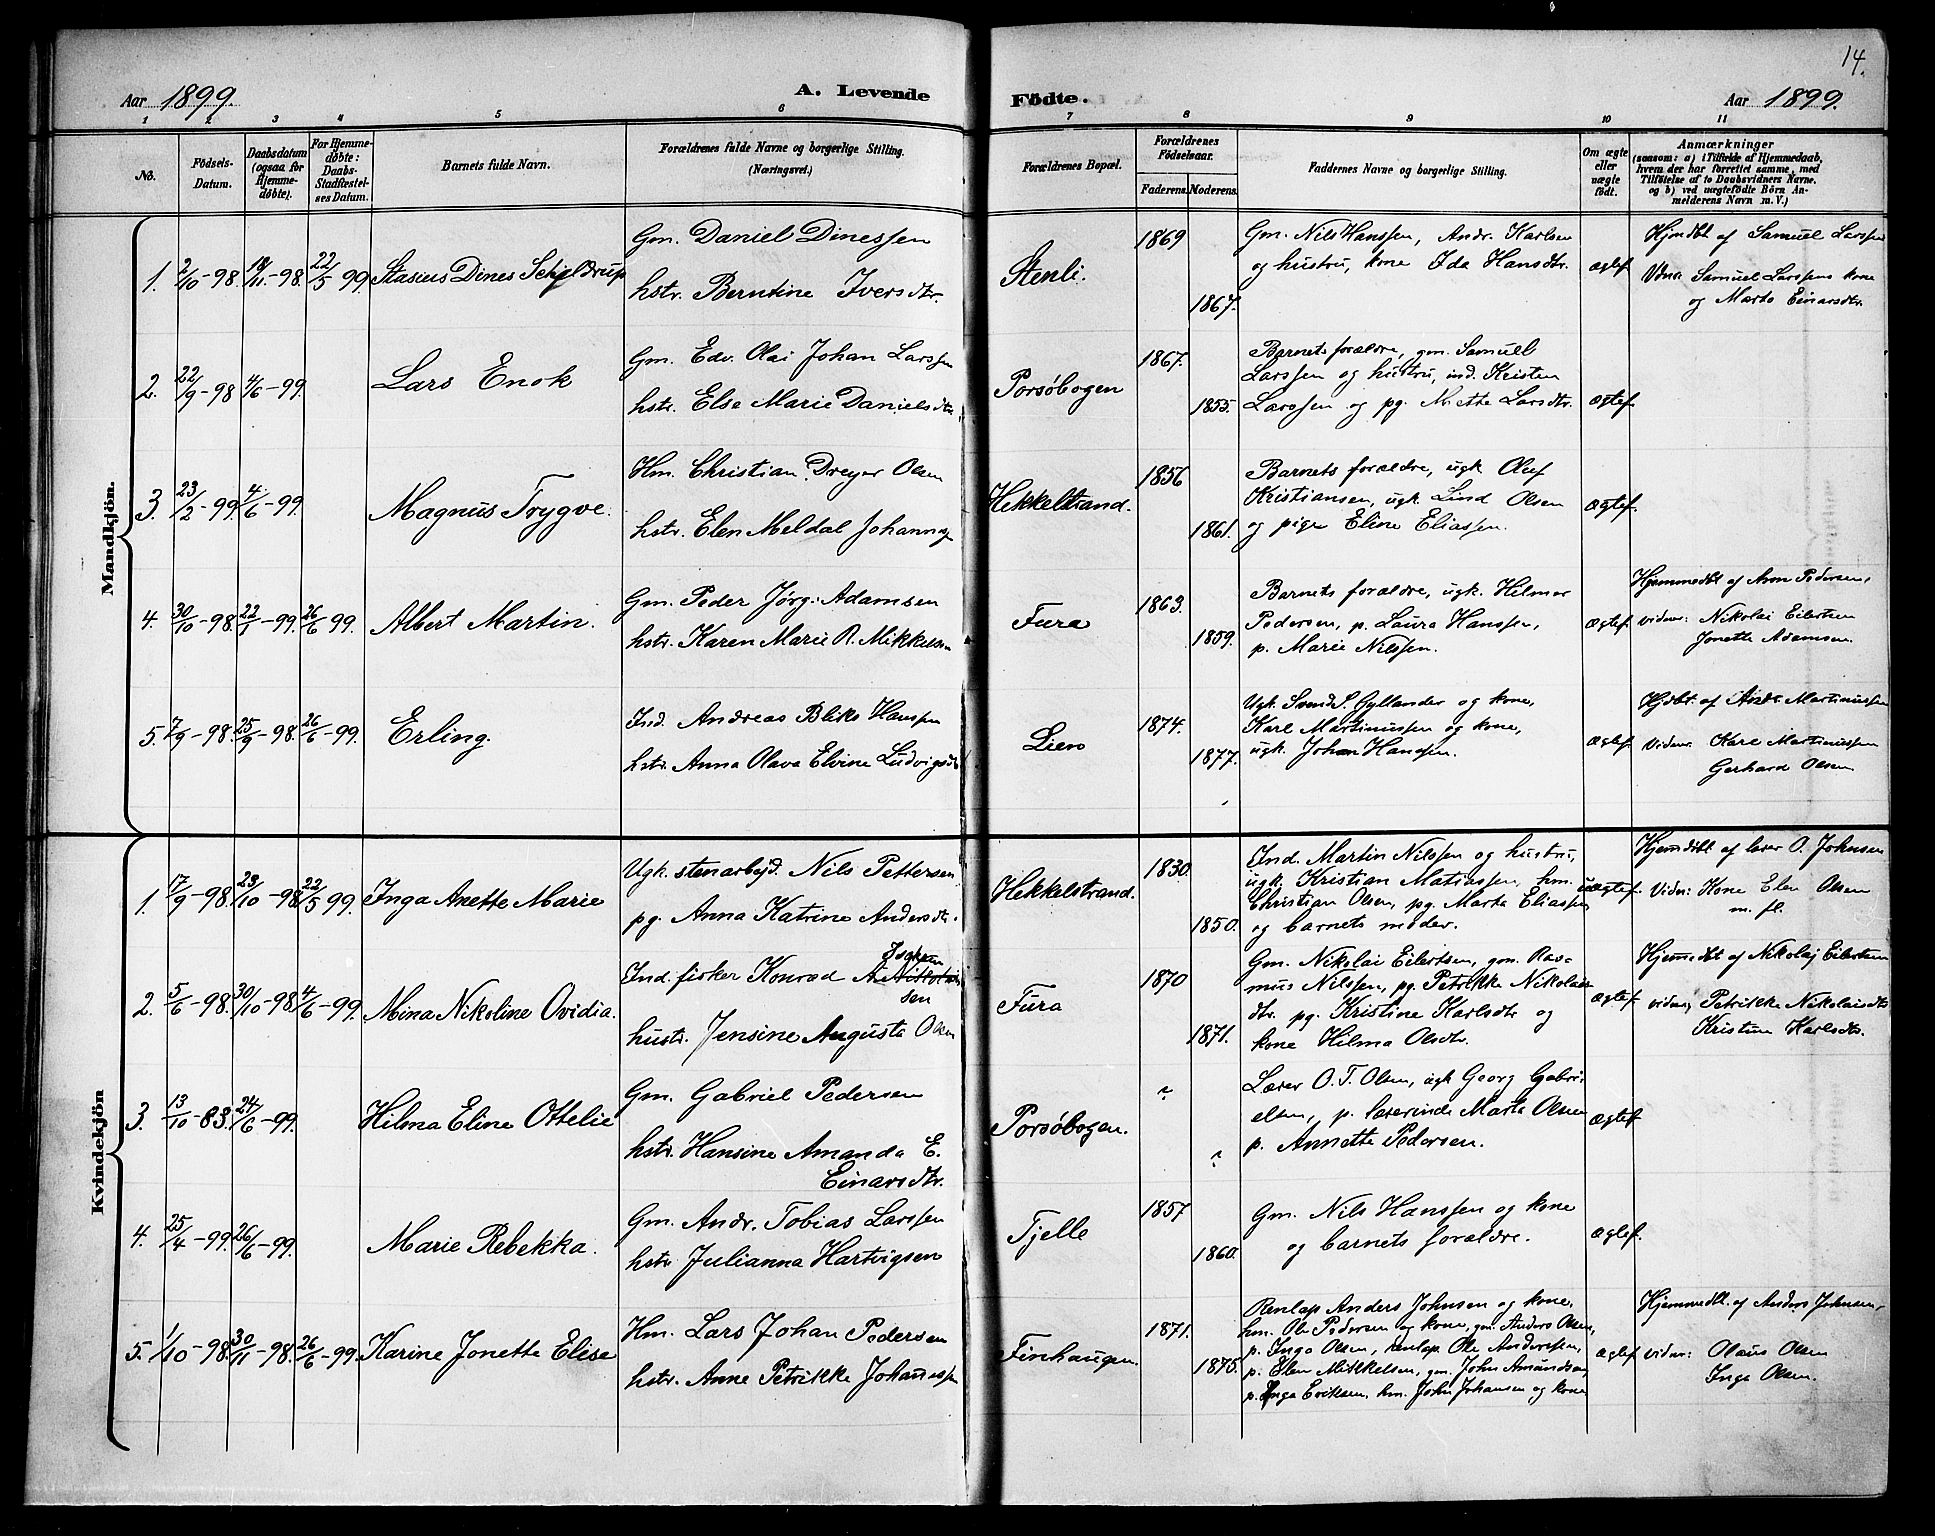 14.
Aar 1899. A. Levende Födte. Aar 1899.
1 2 3 4 5 6 7 8 9 10 11
No. Födsels-Datum. Daabsdatum (ogsaa for Hjemme-döbte). For Hjemme-döbte: Daabs-Stadfæstel-ses Datum. Barnets fulde Navn. Forældrenes fulde Navne og borgerlige Stilling. (Næringsvei.) Forældrenes Bopæl. Forældrenes Födselsaar. Faderens. Moderens. Faddernes Navne og borgerlige Stilling. Om ægte eller uægte födt. Anmærkninger (saasom: a) i Tilfælde af Hjemmedaab, hvem der har forrettet samme, med Tilföielse af to Daabsvidners Navne, og b) ved uægtefödte Börn An-melderens Navn m. V.)
Mandkjön.
1. 2/10-98. 18/11-98. 22/5 99. Stasius Dines Scheldrup
Gm. Daniel Dinessen
hstr. Berntine Iversdtr.
Stenli. 1869 1867.
Gm. Nils Hanssen, Andr. Karlsen
og hustru, kone Ida Hansdtr.
ægtef.
Hjmdbt af Samuel Larssen
Vdnr. Samuel Larssens kone
og Marta Einarsdtr.
2. 22/9-98 4/6-99. Lars Enok
Gm. Edv. Olai Johan Larssen
hstr. Else Marie Danielsdtr.
Porsöbogen 1867. 1855.
Barnets forældre, gm. Samuel
Larssen og hustru, ind. Kristen
Larssen og pg. Mette Larsdtr.
ægtef.
3. 23/2-99. 4/6-99. Magnus Trygve.
Hm. Christian Dreyer Olsen
hstr. Elen Meldal Johannes
Hekkelstrand. 1856 1861.
Barnets forældre, ugk. Oluf
Kristiansen, ugk. Lind Olsen
og pige Eline Eliassen.
ægtef.
4. 30/10-98. 22/1-99. 26/6 99. Albert Martin.
Gm. Peder Jörg. Adamsen
hstr. Karen Marie R. Mikkelsen
Fura 1863. 1859.
Barnets forældre, ugk. Hilmar
Pedersen, p. Laura Hanssen,
p. Marie Nilssen.
ægtef.
Hjemmedbt af Aron Pedersen,
vidner: Nikolai Eilertsen
Jonette Adamsen.
5. 7/9-98. 25/9-98. 26/6-99. Erling.
Ind. Andreas Bliks Hanssen
hstr. Anna Olava Elvine Ludvigsdtr
Lien 1874. 1877.
Ugk. Svend S. Gyllander og kone,
Karl Martinussen og kone,
ugk. Johan Hanssen.
ægtef.
Hjdbt. af Martinussen
Vidnr. Karl Martinussen
Gerhard Olsen
Kvindekjön
1. 17/9-98. 23/10-98. 22/5 99. Inga Anette Marie
Ugk. stenarbejd. Nils Pettersen
pg. Anna Katrine Andersdtr.
Hekkelstrand. 1830. 1850.
Ind. Martin Nilssen og hustru,
ugk. Kristian Matiassen, hm.
Christian Olsen, pg. Marta Eliassen
og barnets moder.
uægtef.
Hjemdöbt af lærer O. Johnsen
Vidnr: Kone Elen Olsen
m. fl.
2. 5/6-98. 30/10-98. 4/6-99. Mina Nikoline Ovidia.
Isaksen
Ind. fisker Konrad
sen
hustr. Jensine Augusta Olsen
Fura 1870 1871.
Gm. Nikolai Eilertsen, gm. Ras-
mus Nilssen, pg. Petrikke Nikolais
dtr. pg. Kristine Karlsdtr og
kone Hilma Olsdtr.
ægtef.
Hjemmedbt af Nikolaj Eilertsen
vidner, Petrikke Nikolaisdtr
Kristine Karlsdtr.
3. 13/10-83. 24/6-99. Hilma Eline Ottelie
Gm. Gabriel Pedersen
hstr. Hansine Amanda E.
Einarsdtr.
Porsöbogen. ? ?
Lærer O. T. Olsen, ugk Georg Gabri-
elsen, p. lærerinde Marta Olsen
p. Annette Pedersen.
ægtef.
4. 25/4-99. 26/6-99. Marie Rebekka.
Gm. Andr. Tobias Larssen
hstr. Julianna Hartvigsen
Tjelle 1857 1860.
Gm. Nils Hanssen og kone
og barnets forældre.
ægtef.
5. 1/10-98. 30/11-98. 26/6-99. Karine Jonette Elise
Hm. Lars Johan Pedersen
hstr. Anne Petrikke Johannessen
Finhaugen. 1871. 1875.
Renlap Anders Johnsen og kone,
hm. Ole Pedersen og kone, gm. Anders Olsen,
p. Inga Olsen, renlap Ole Anderssen,
p. Elen Mikkelsen, gm. John Amundsen,
p. Inga Eriksen, hm. John Johansen og kone
ægtef.
Hjemmedbt. af Anders Johnsen,
vidnr: Olaus Olsen
Inga Olsen.